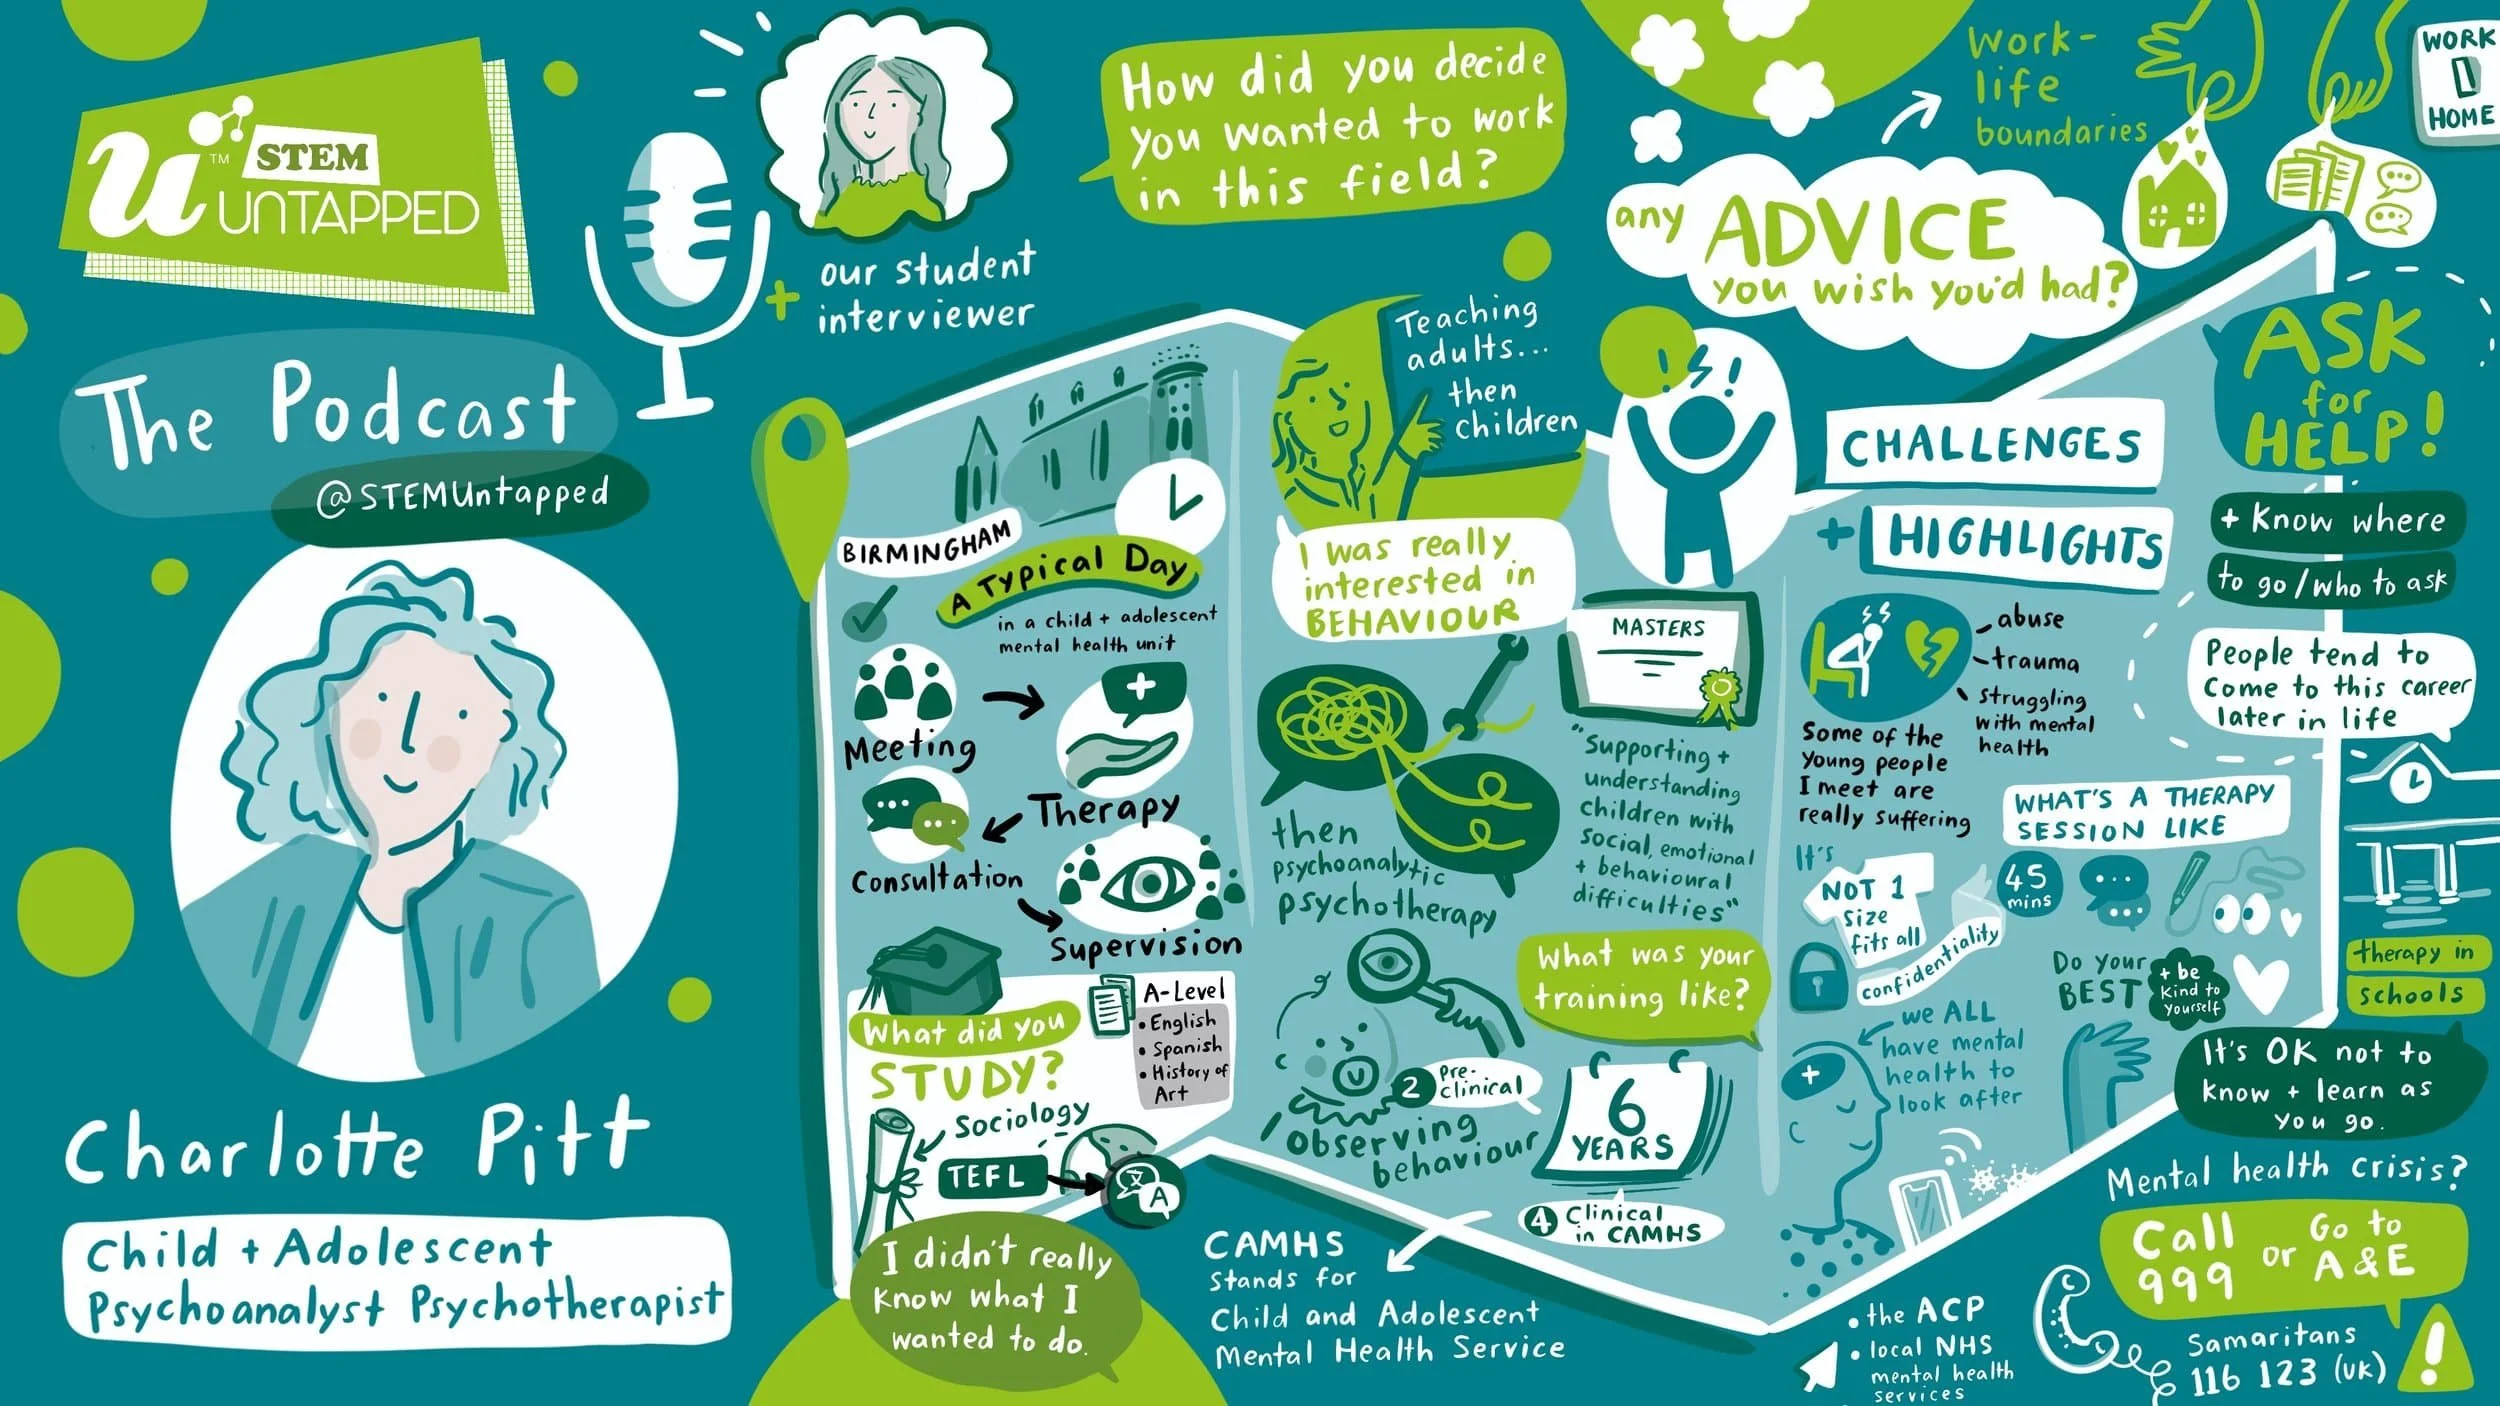 u™ STEM
UNTAPPED
The Podcast
@STEMUntapped
Charlotte Pitt
Child + Adolescent
Psychoanalyst Psychotherapist
+ our student
interviewer
How did you decide
you wanted to work
in this field?
BIRMINGHAM
A Typical Day
in a child + adolescent
mental health unit
Meeting
Therapy
Consultation
Supervision
What did you
STUDY?
A-Level
• English
• Spanish
• History of
Art
Sociology
TEFL
A
I didn't really
know what I
wanted to do.
Teaching
adults...
then
children
I was really
interested in
BEHAVIOUR
then
psychoanalytic
psychotherapy
MASTERS
"Supporting +
understanding
children with
social, emotional
+ behavioural
difficulties"
What was your
training like?
2 Pre-
Clinical
Observing
behaviour
6
YEARS
4 Clinical
in CAMHS
CAMHS
Stands for
Child and Adolescent
Mental Health Service
any ADVICE
you wish you'd had?
Work-
life
boundaries
WORK
HOME
CHALLENGES
+ HIGHLIGHTS
- abuse
- trauma
- struggling
with mental
health
Some of the
Young people
I meet are
really suffering
WHAT'S A THERAPY
SESSION LIKE
It's
NOT 1
size
fits all
confidentiality
45
mins
Do your
BEST
+ be
Kind to
Yourself
we ALL
have mental
health to
look after
ASK
for
HELP!
+ Know where
to go/who to ask
People tend to
Come to this career
later in life
therapy in
schools
It's OK not to
know + learn as
you go.
Mental health crisis?
Call
999
or
Go to
A & E
Samaritans
116 123 (UK)
• the ACP
• local NHS
mental health
services